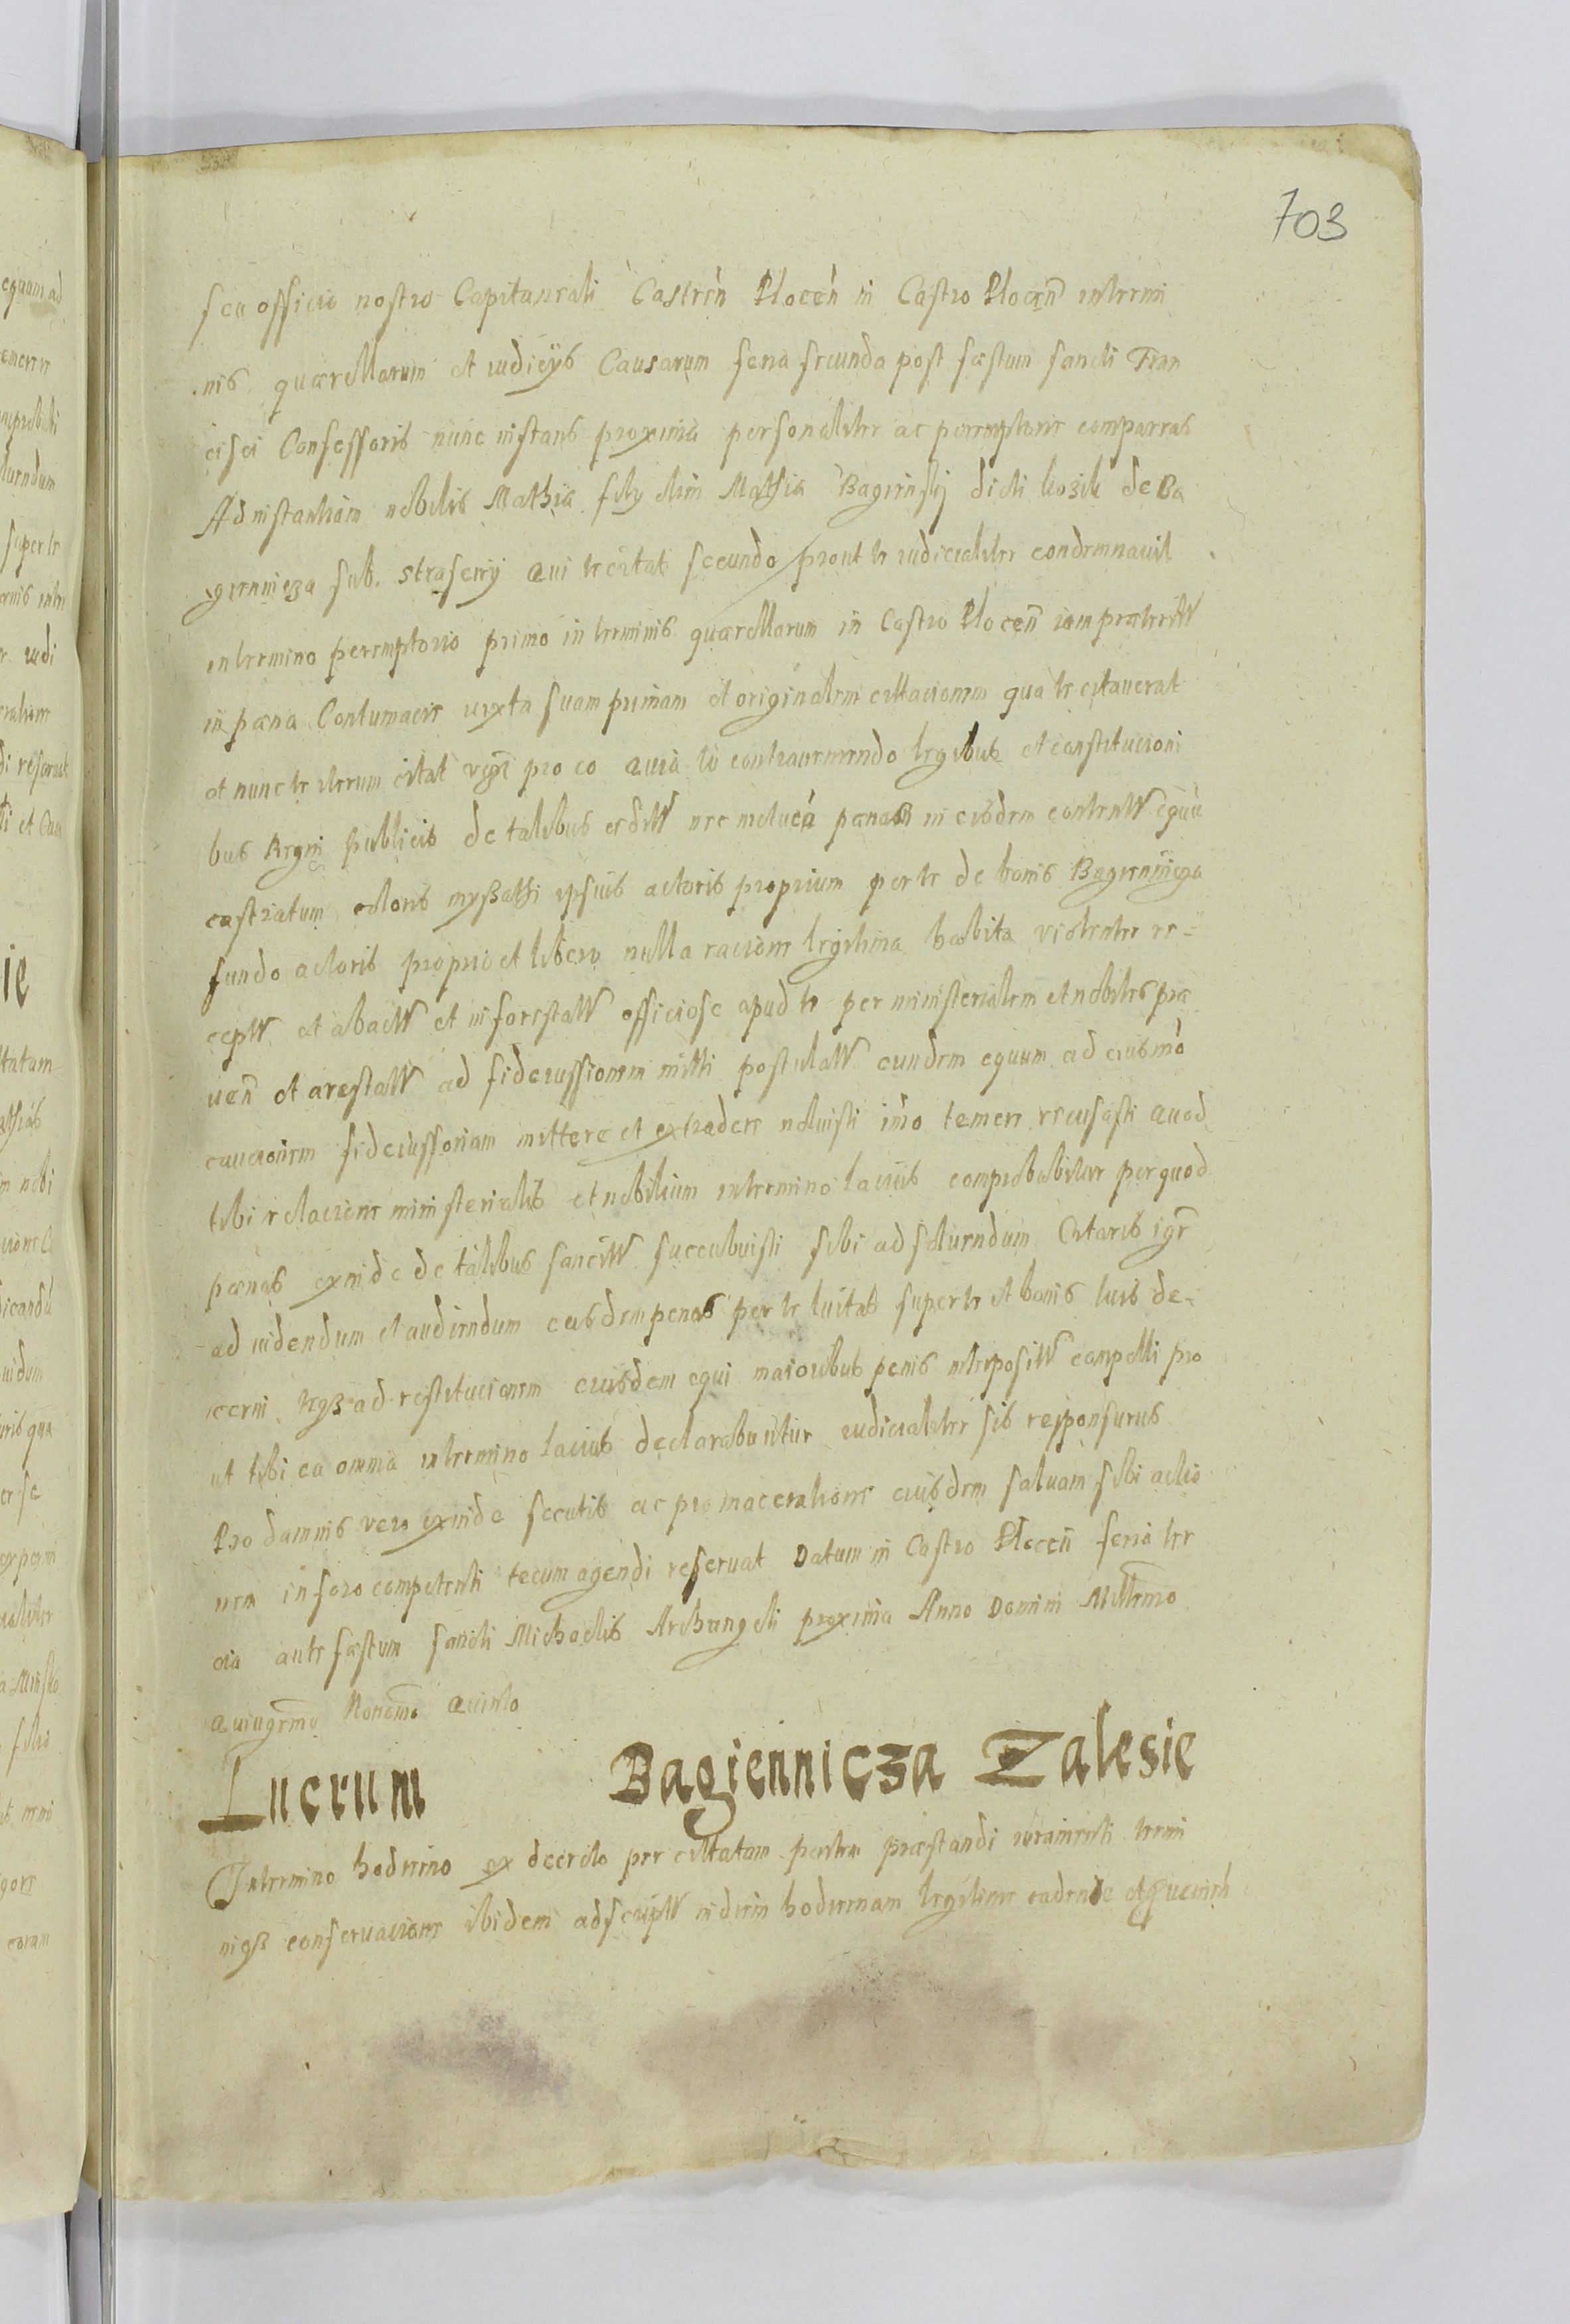 703
seu officio nostro Capitaneali Castren Plocen in Castro Plocen in termi
nis quærellarum et iudicijs Causarum feria secunda post fæstum sancti Fran
cisci Confessoris nunc instans proxima personaliter ac peremptorie compareas
Ad instantiam nobilis Mathiæ filij olim Mathiæ Bagienskij dicti kozik de Ba
giennicza sub. strasserij Qui te citat secundo prout te iudicialiter condemnauit
in termino peremptorio primo in terminis quærellarum in Castro Plocen iam præteritis
in pæna Contumaciæ iuxta suam primam et originalem cittacionem qua te citauerat
et nunc te iterum citat pro eo Quia tu contraueniendo legibus et constitucioni
bus Regni publicis de talibus æditis nec metuen pænas in eisdem contentis equu
castratum coloris ipsius actoris proprium per te de bonis Bagiennicza
fundo actoris proprio et libero nulla racione legitima habita violenter re-
ceptis et abactis et inforestatis officiose apud te per ministerialem et nobiles præ
uen et arestatis ad fideiussionem mitti postulatis eundem equum ad eiusmo
caucionem fideiussoriam mittere et extradere noluisti imo temere recusasti Quod
tibi relacione ministerialis et nobilium in termino lacius comprobabitur per quod
pænas exinde de talibus sancitis succubuisti sibi ad soluendum Citaris igr
ad uidendum et audiendum easdem penas per te luitas super te et bonis tuis de-
cerni teqz ad restitucionem eiusdem equi maioribus penis interpositis compelli pro
ut tibi ea omnia in termino lacius declarabuntur iudicialiter sis responsurus
Pro damnis vero exinde secutis ac pro maceratione eiusdem saluam sibi actio
nem in foro competenti tecum agendi reseruat Datum in Castro Plocen feria ter
cia ante fæstum sancti Michaelis Archangeli proxima Anno Domini Millemo
Quingemo Nonomo Quinto
Lucrum Bagiennicza Zalesie
In termino hodierno ex decreto per cittatam partem præstandi iuramenti termi
niqz conseruacione ibidem adscriptis in diem hodiernam legitime cadende